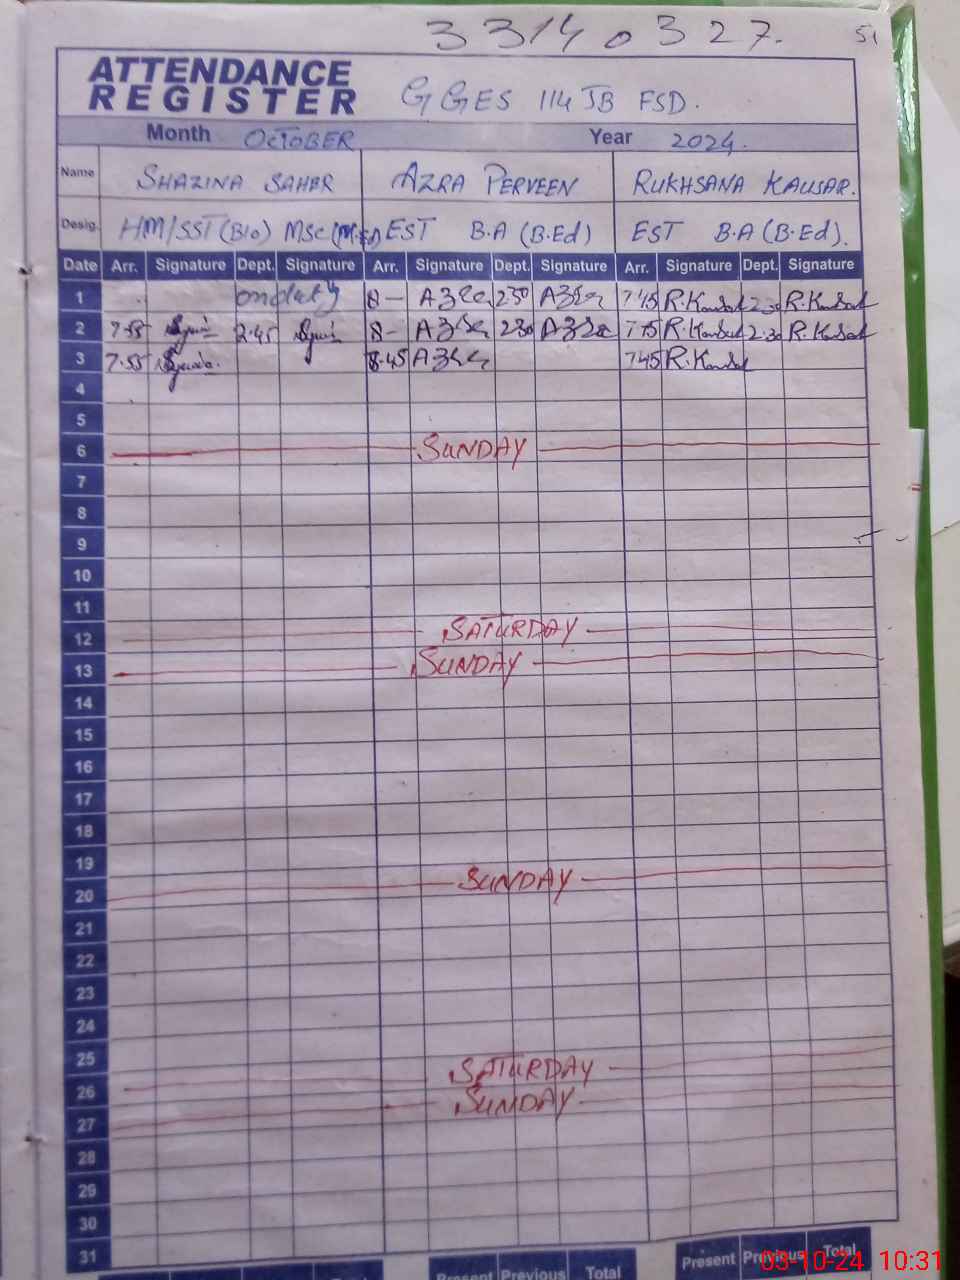 33140327.
51
ATTENDANCE
REGISTER
GGES 114 JB FSD.
Month OCTOBER Year 2024.
Name SHAZINA SAHER AZRA PERVEEN RUKHSANA KAUSAR.
Desig. HM/SST (Bio) MSc (M.Ed) EST B.A (B.Ed) EST B.A (B.Ed).
Date Arr. Signature Dept. Signature Arr. Signature Dept. Signature Arr. Signature Dept. Signature
1 on duty 8- Azra 2 30 Azra 7:45 R.Kausar 2:30 R.Kausar
2 7:55 2:45 8- Azra 2 30 Azra R.Kausar 2:30 R.Kausar
3 7:55 8:45 Azra 7 45 R.Kausar
4
5
6 SUNDAY
7
8
9
10
11
12 SATURDAY
13 SUNDAY
14
15
16
17
18
19
20 SUNDAY
21
22
23
24
25
26 SATURDAY
27 SUNDAY
28
29
30
31
Present Previous Total Present Previous Total
03-10-24 10:31